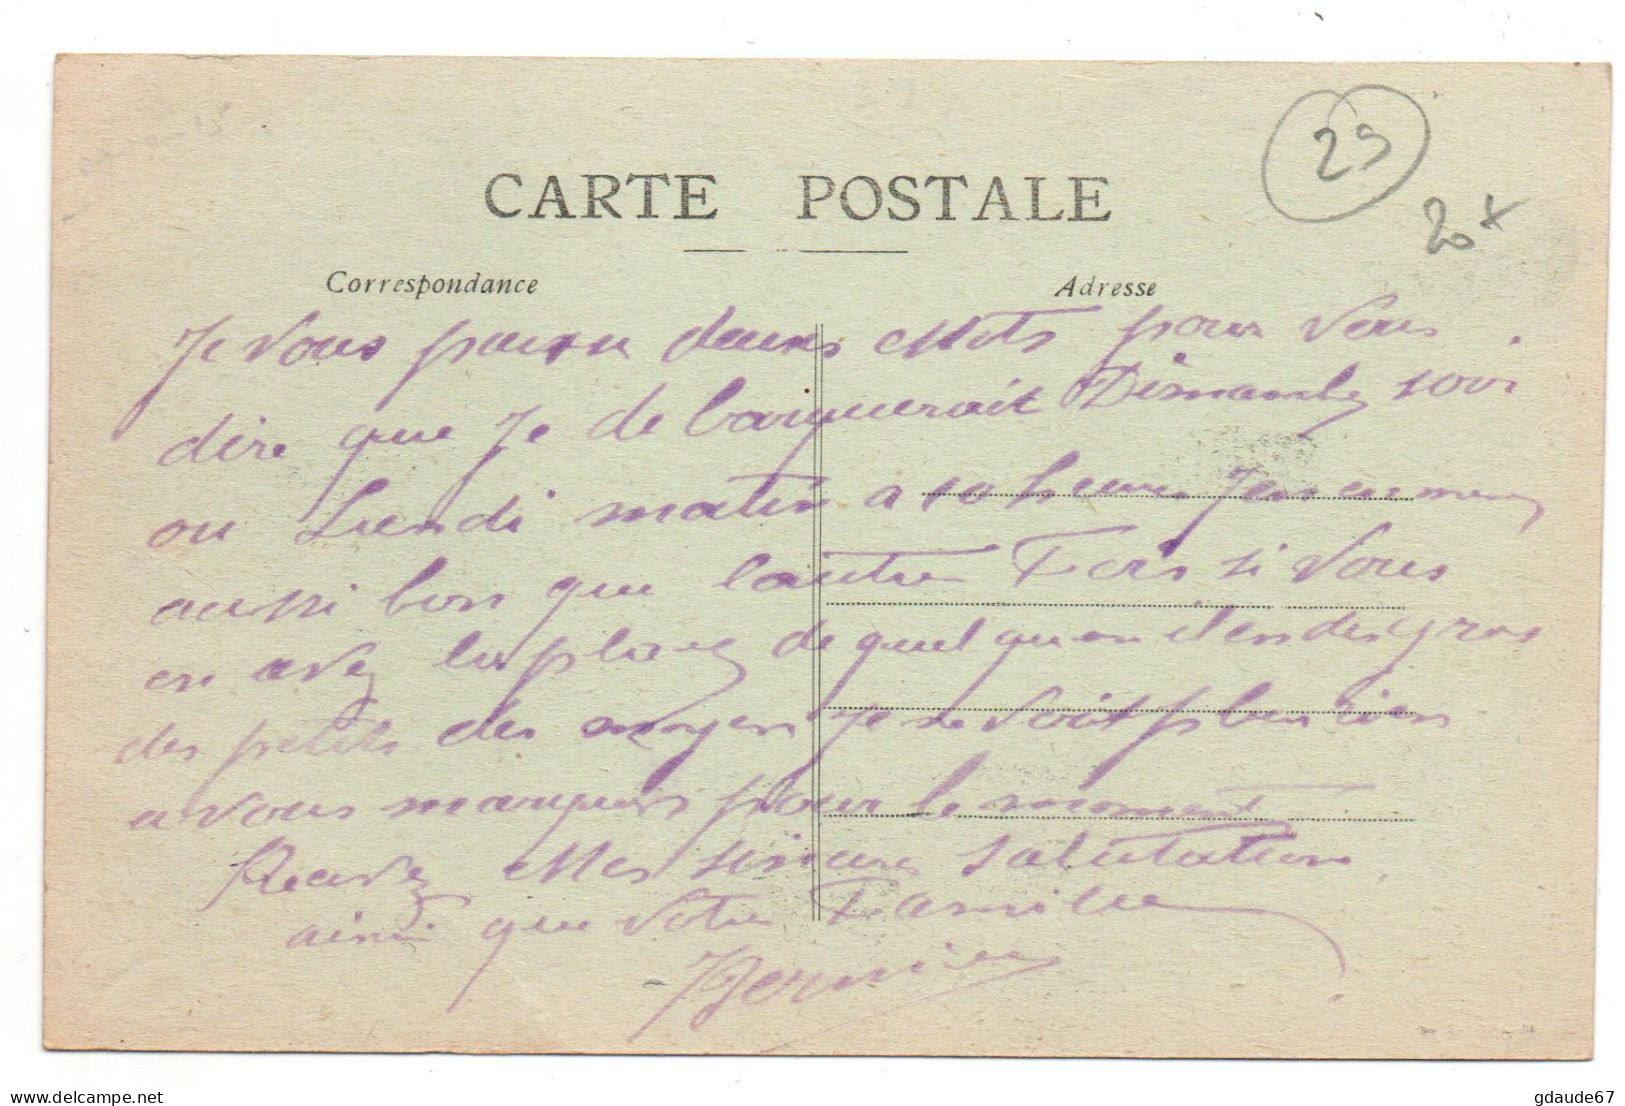 29
20 x
CARTE POSTALE
Correspondance
Adresse
Je vous deuxs Mots pour vous
dire que Je de barquerait Dimanche soir
ou Lundi matin a 10 heures
aussi bon que lautre Fois si vous
en avez la place de quelquon il en des gros
des petits des moyens Je ne voit plus rien
a vous marquer pour le moment
Recevez Mes sincere salutation
ainsi que votre Famille
JBernier
www.delcampe.net
gdaude67